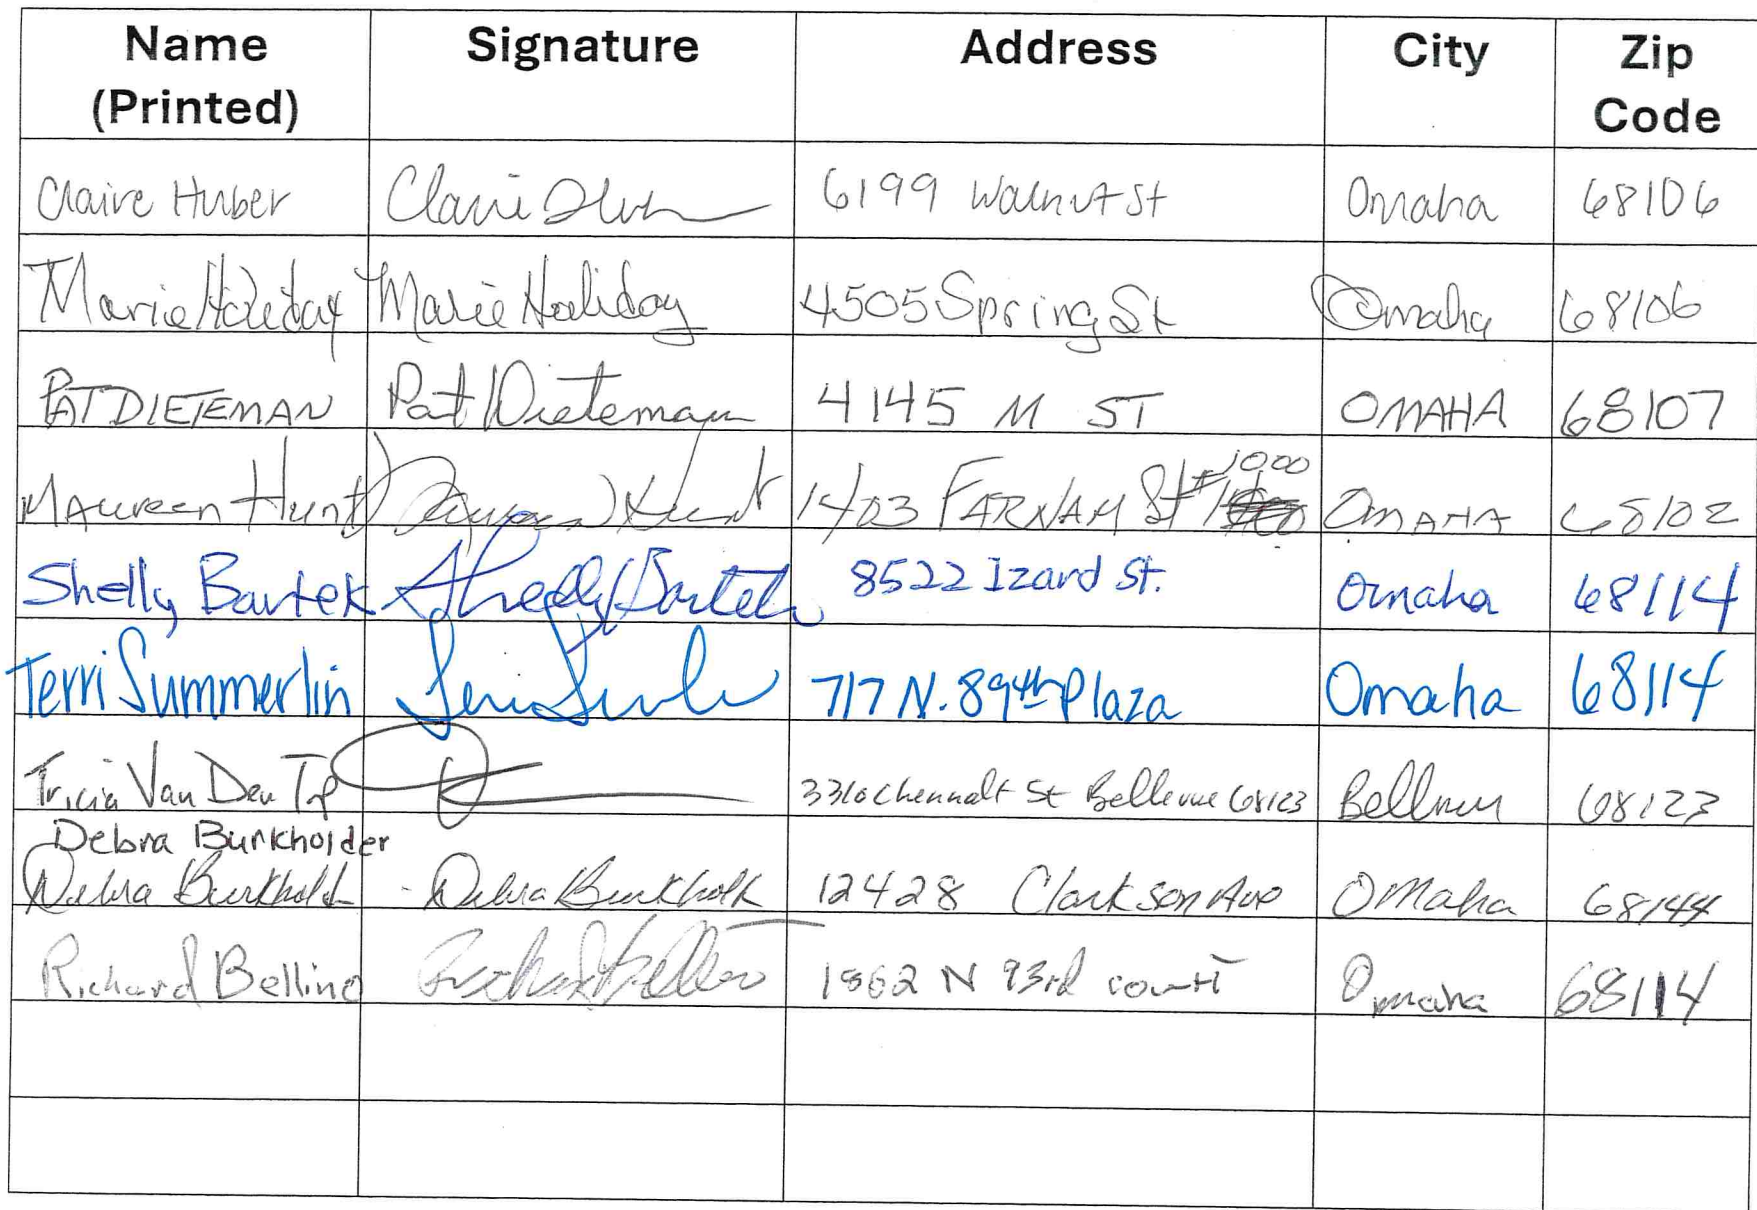 Name (Printed) Signature Address City Zip Code
Claire Huber Claire Huber 6199 Walnut St Omaha 68106
Marie Holiday Marie Holiday 4505 Spring St Omaha 68106
PAT DIETEMAN Pat Dieteman 4145 M ST OMAHA 68107
Maureen Hunt Maureen Hunt 1403 FARNAM St #1000 OMAHA 68102
Shelly Bartek Shelly Bartek 8522 Izard St. Omaha 68114
Terri Summerlin 717 N. 89th Plaza Omaha 68114
Tricia Van Den Top Chennalt St Bellevue 68123 Bellevue 68123
Debra Burkholder
Debra Burkholder Debra Burkholder 12428 Clarkson Ave Omaha 68144
Richard Bellino Richard Bellino 1862 N 93rd court Omaha 68114